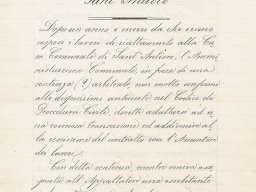 Sant'Antioco
Dopo un anno e mezzo da che erano
sospesi i lavori di riattamento alla Ca
sa Comunale di Sant'Antioco, l'Ammi
nistrazione Comunale, in forza di una
sentenza (?) arbitrale non molto conforme
alle disposizioni contenute nel Codice di
Procedura Civile, dovette adattarsi ad u
na rovinosa transazione ed addivenire al
la rescissione del contratto con l'Assuntore
dei lavori.
Con detta sentenza, mentre veniva asse
gnato all'Appaltatore una esorbitante